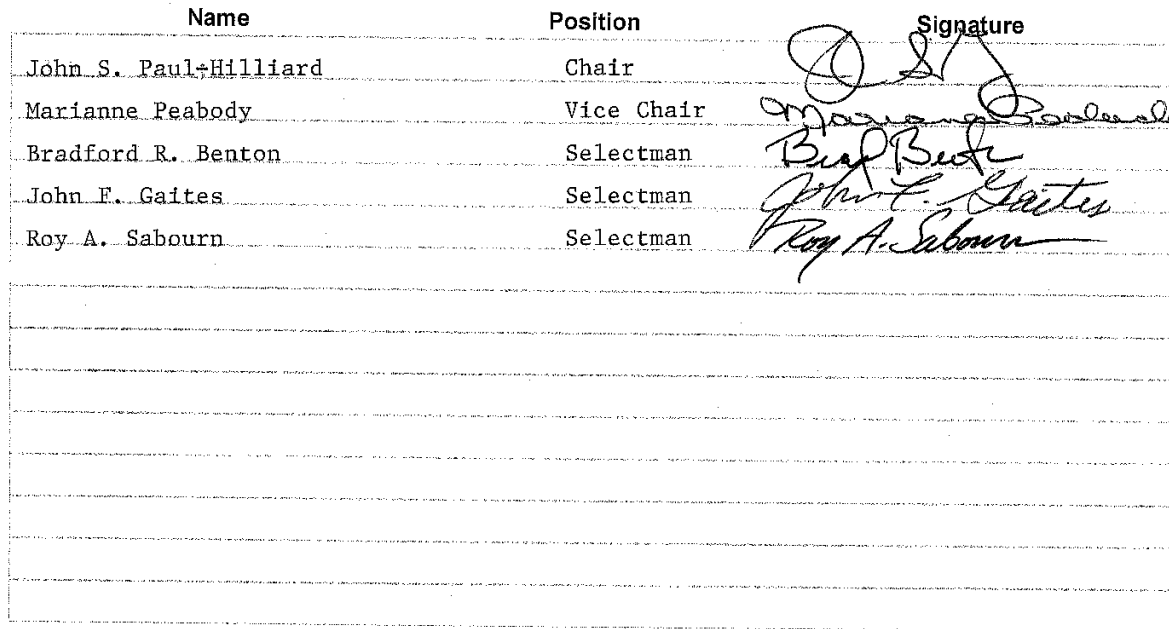 Name Position Signature
John S. Paul-Hilliard Chair
Marianne Peabody Vice Chair Marianne Peabody
Bradford R. Benton Selectman Brad Benton
John F. Gaites Selectman John F. Gaites
Roy A. Sabourn Selectman Roy A. Sabourn